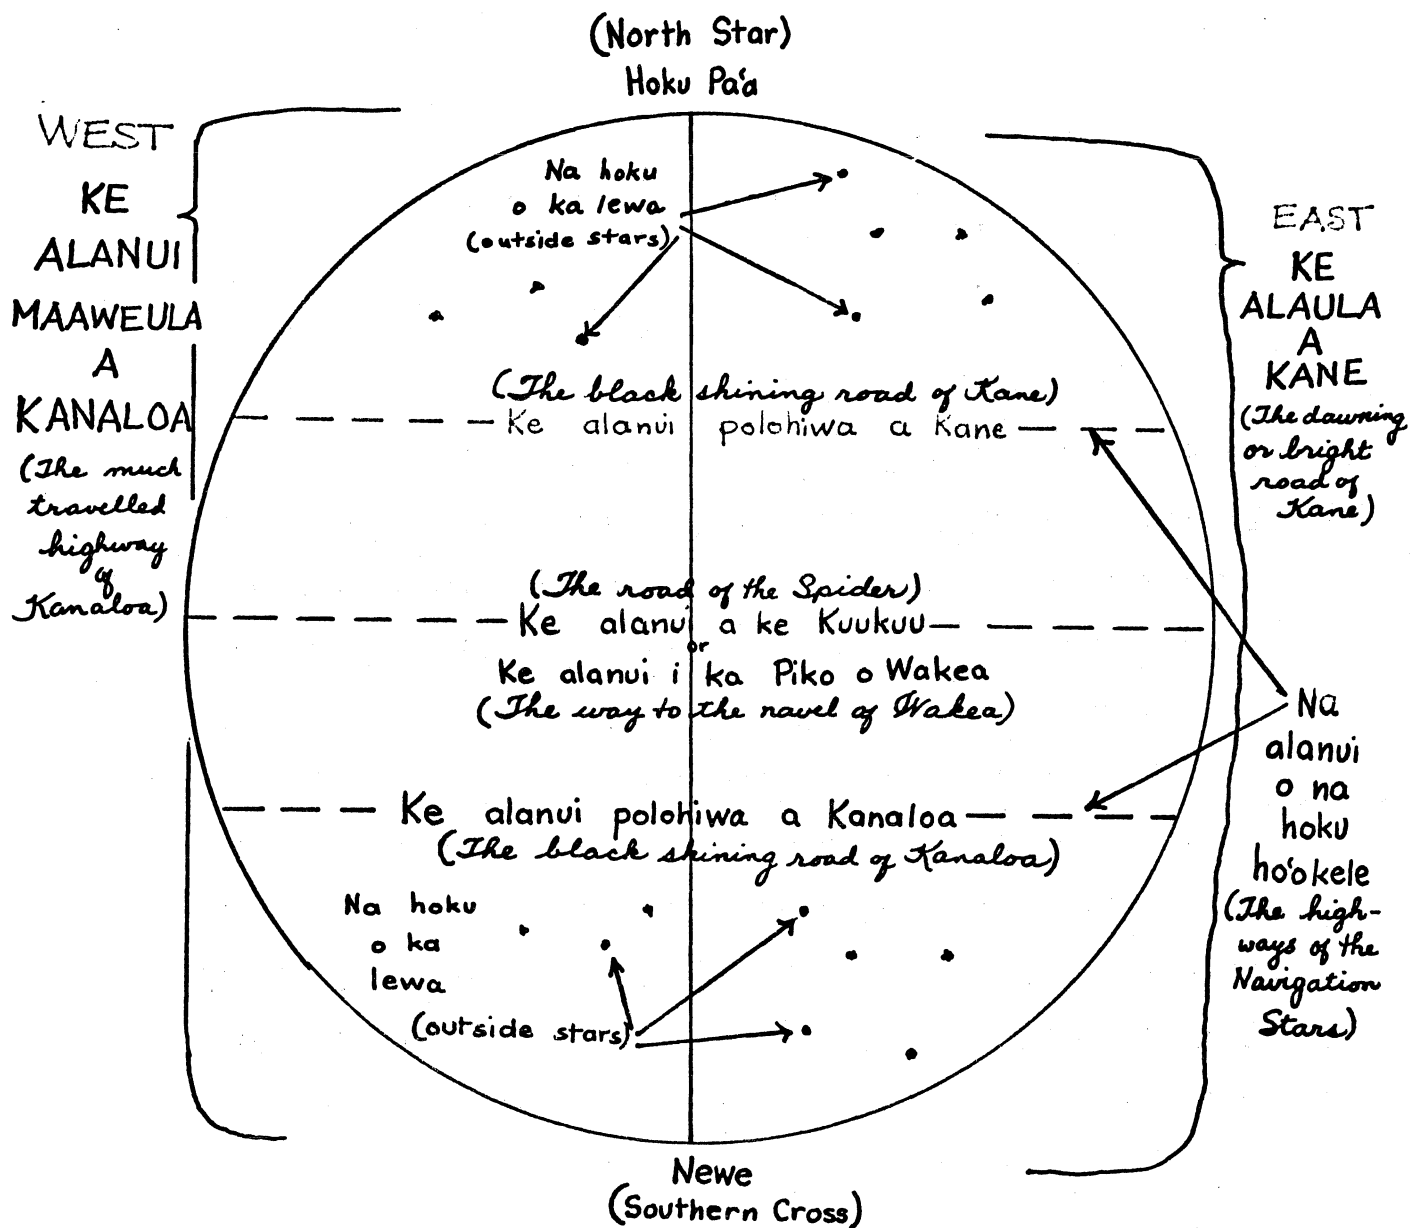 (North Star)
Hoku Pa'a
WEST
KE
ALANUI
MAAWEULA
A
KANALOA
(The much
travelled
highway
of
Kanaloa)
Na hoku
o ka lewa
(outside stars)
(The black shining road of Kane)
Ke alanui polohiwa a Kane
(The road of the Spider)
Ke alanui a ke Kuukuu
or
Ke alanui i ka Piko o Wakea
(The way to the navel of Wakea)
Ke alanui polohiwa a Kanaloa
(The black shining road of Kanaloa)
Na hoku
o ka
lewa
(outside stars)
EAST
KE
ALAULA
A
KANE
(The dawning
or bright
road of
Kane)
Na
alanui
o na
hoku
ho'okele
(The high-
ways of the
Navigation
Stars)
Newe
(Southern Cross)